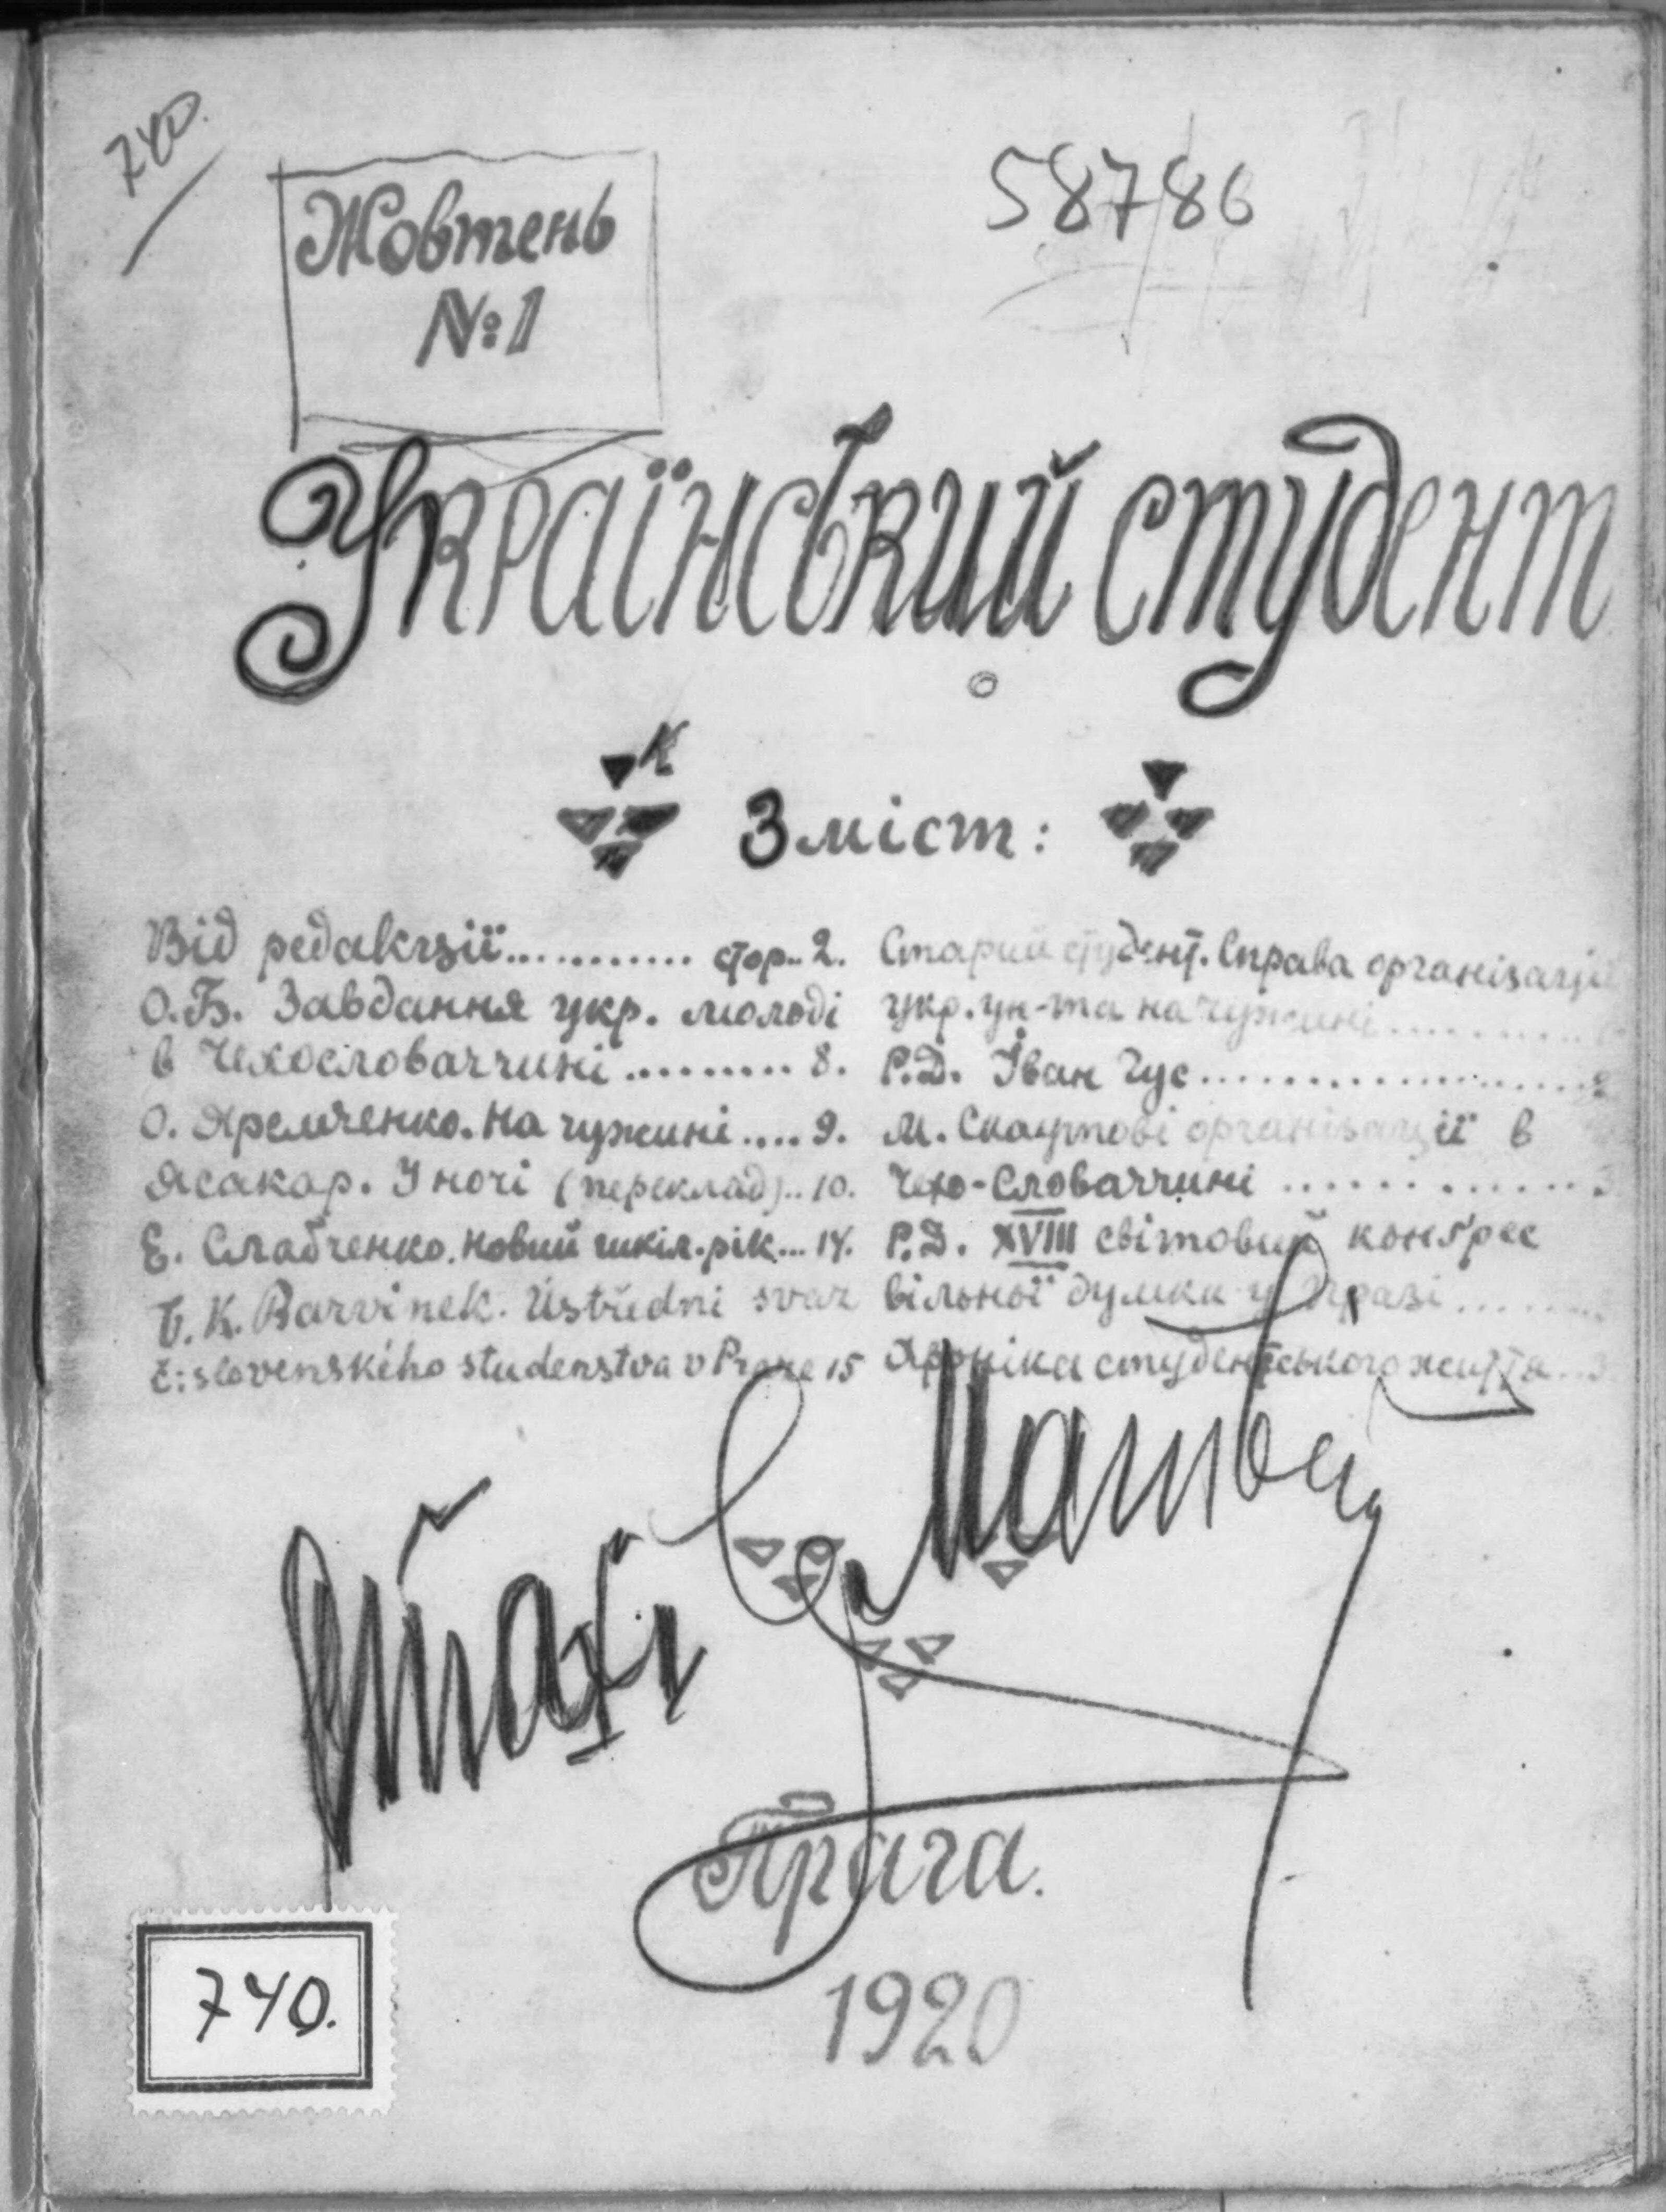 740.
58786
Жовтень
№1
Український студент
К
Зміст:
Від редакції............ стор..2.
О.Б. Завдання укр. молоді
в Чехословаччині ......... 8.
О. Яремченко. На чужині.... 9.
Ясакар. Уночі (переклад).. 10.
Е. Слабченко. Новий шкіл. рік... 14.
K. Barvinek. Ústředni svaz
č:slovenského studenstva v Praze 15
Старий студент. Справа організації
укр. ун-та на чужині..........
Р.Д. Іван Гус....................
М. Скаутові організації в
Чехо-Словаччині ..............
Р.Д. XVIII світовий конґрес
вільної думки у Празі........
Хроніка студентського життя...
Прага.
1920
740.